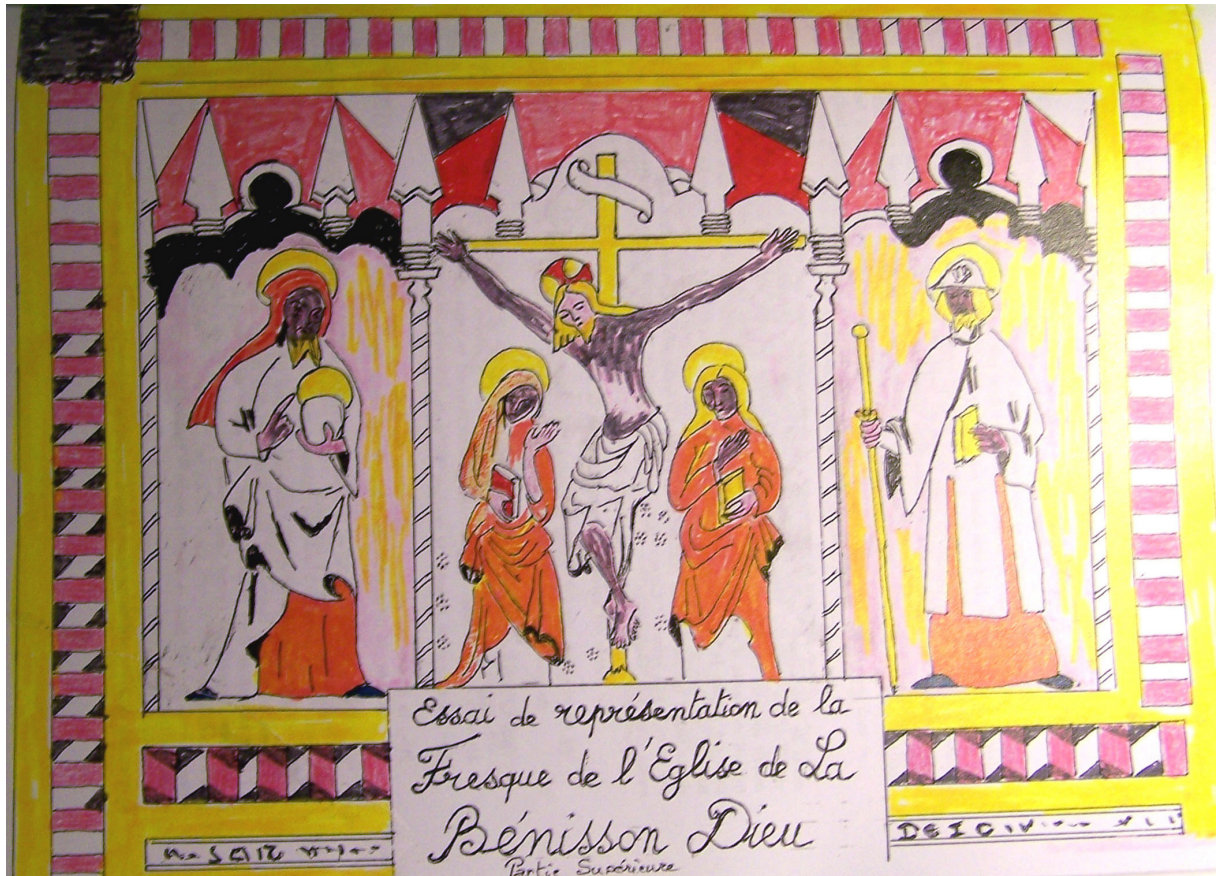 Essai de représentation de la
Fresque de l'Eglise de La
Bénisson Dieu
Partie Supérieure